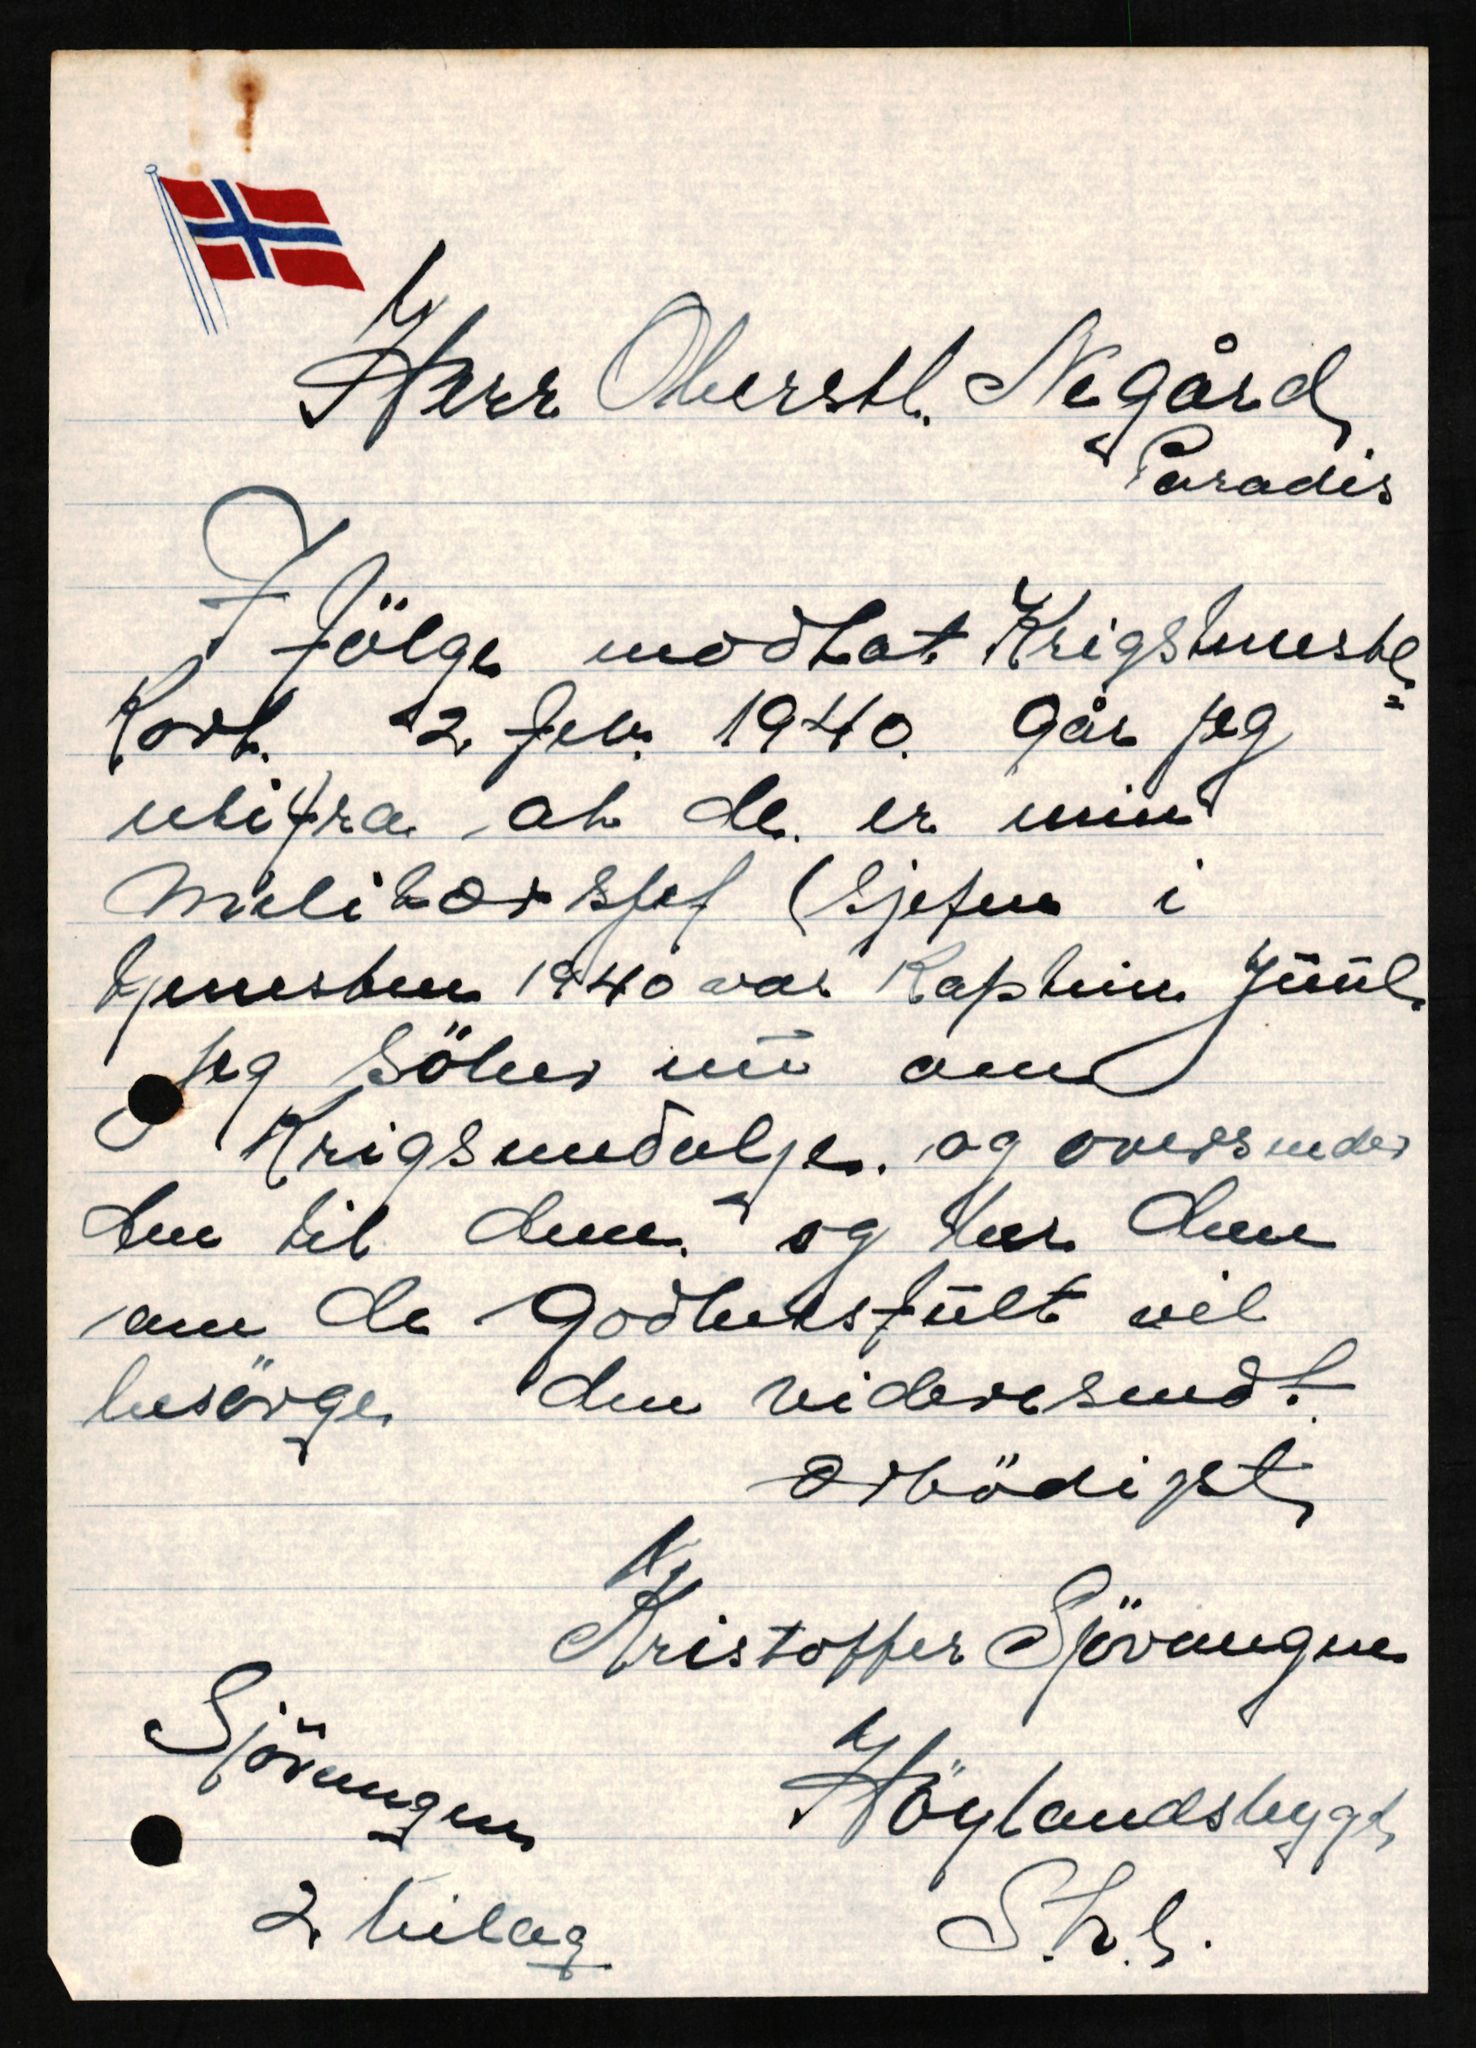 Herr Oberstl. Negård,
Paradis
I følge modtat Krigsbuestl=
Kort. 2 feb. 1940. går jeg
utifra at de. er min
Militær sjef (sjefen i
tjenesten 1940 var Kaptein Jüül.
Jeg söker nü om
Krigsmedalje. og oversender
den til dem. og ber dem
om de godhetsfült vil
besörge den videresendt.
ærbödigst,
Kristoffer Sjövangen
Sjövangen
Höylandsbygd,
S.h.l.
2 bilag